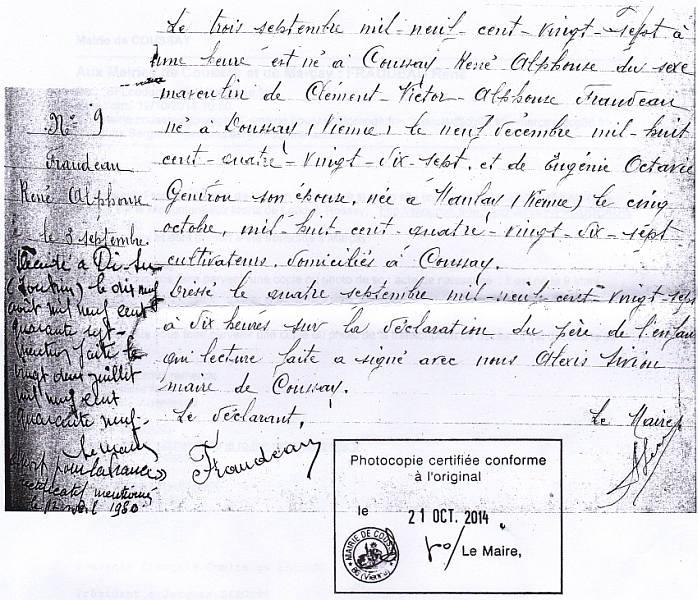 Le trois septembre mil-neuf cent-vingt-sept à
une heure est né à Coussay René Alphonse du sexe
masculin de Clément-Victor-Alphonse Fraudeau
né à Doussay (Vienne) le neuf décembre mil-huit
cent-quatre-vingt-dix-sept, et de Eugénie Octavie
Gendron son épouse, née à Maulay (Vienne) le cinq
octobre, mil-huit-cent-quatre-vingt-dix-sept
cultivateurs, domiciliés à Coussay.
Dressé le quatre septembre mil-neuf-cent-vingt-sept
à dix heures sur la déclaration du père de l'enfant
qui lecture faite a signé avec nous Alexis
maire de Coussay.
Le déclarant,
Le Maire
Fraudeau
N° 9
Fraudeau
René Alphonse
le 3 septembre.
Décédé à Di-An
le dix neuf
août mil neuf cent
quarante sept
mention faite le
vingt deux juillet
mil neuf cent
quarante neuf.
Le Maire
"Mort pour la France"
rectificatif mentionné
le avril 1950
Photocopie certifiée conforme
à l'original
le 21 OCT. 2014
Le Maire,
MAIRIE DE COUSSAY
(Vienne)